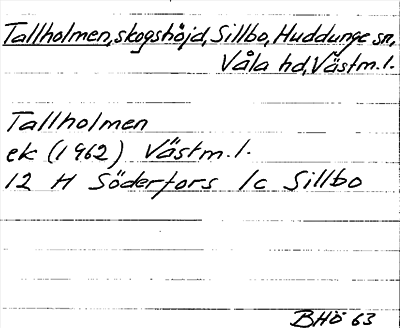 Tallholmen, skogshöjd, Sillbo, Huddunge sn,
Våla hd, Västm.l.
Tallholmen
ek (1962) Västm.l.
12 H Söderfors 1c Sillbo
BHÖ 63